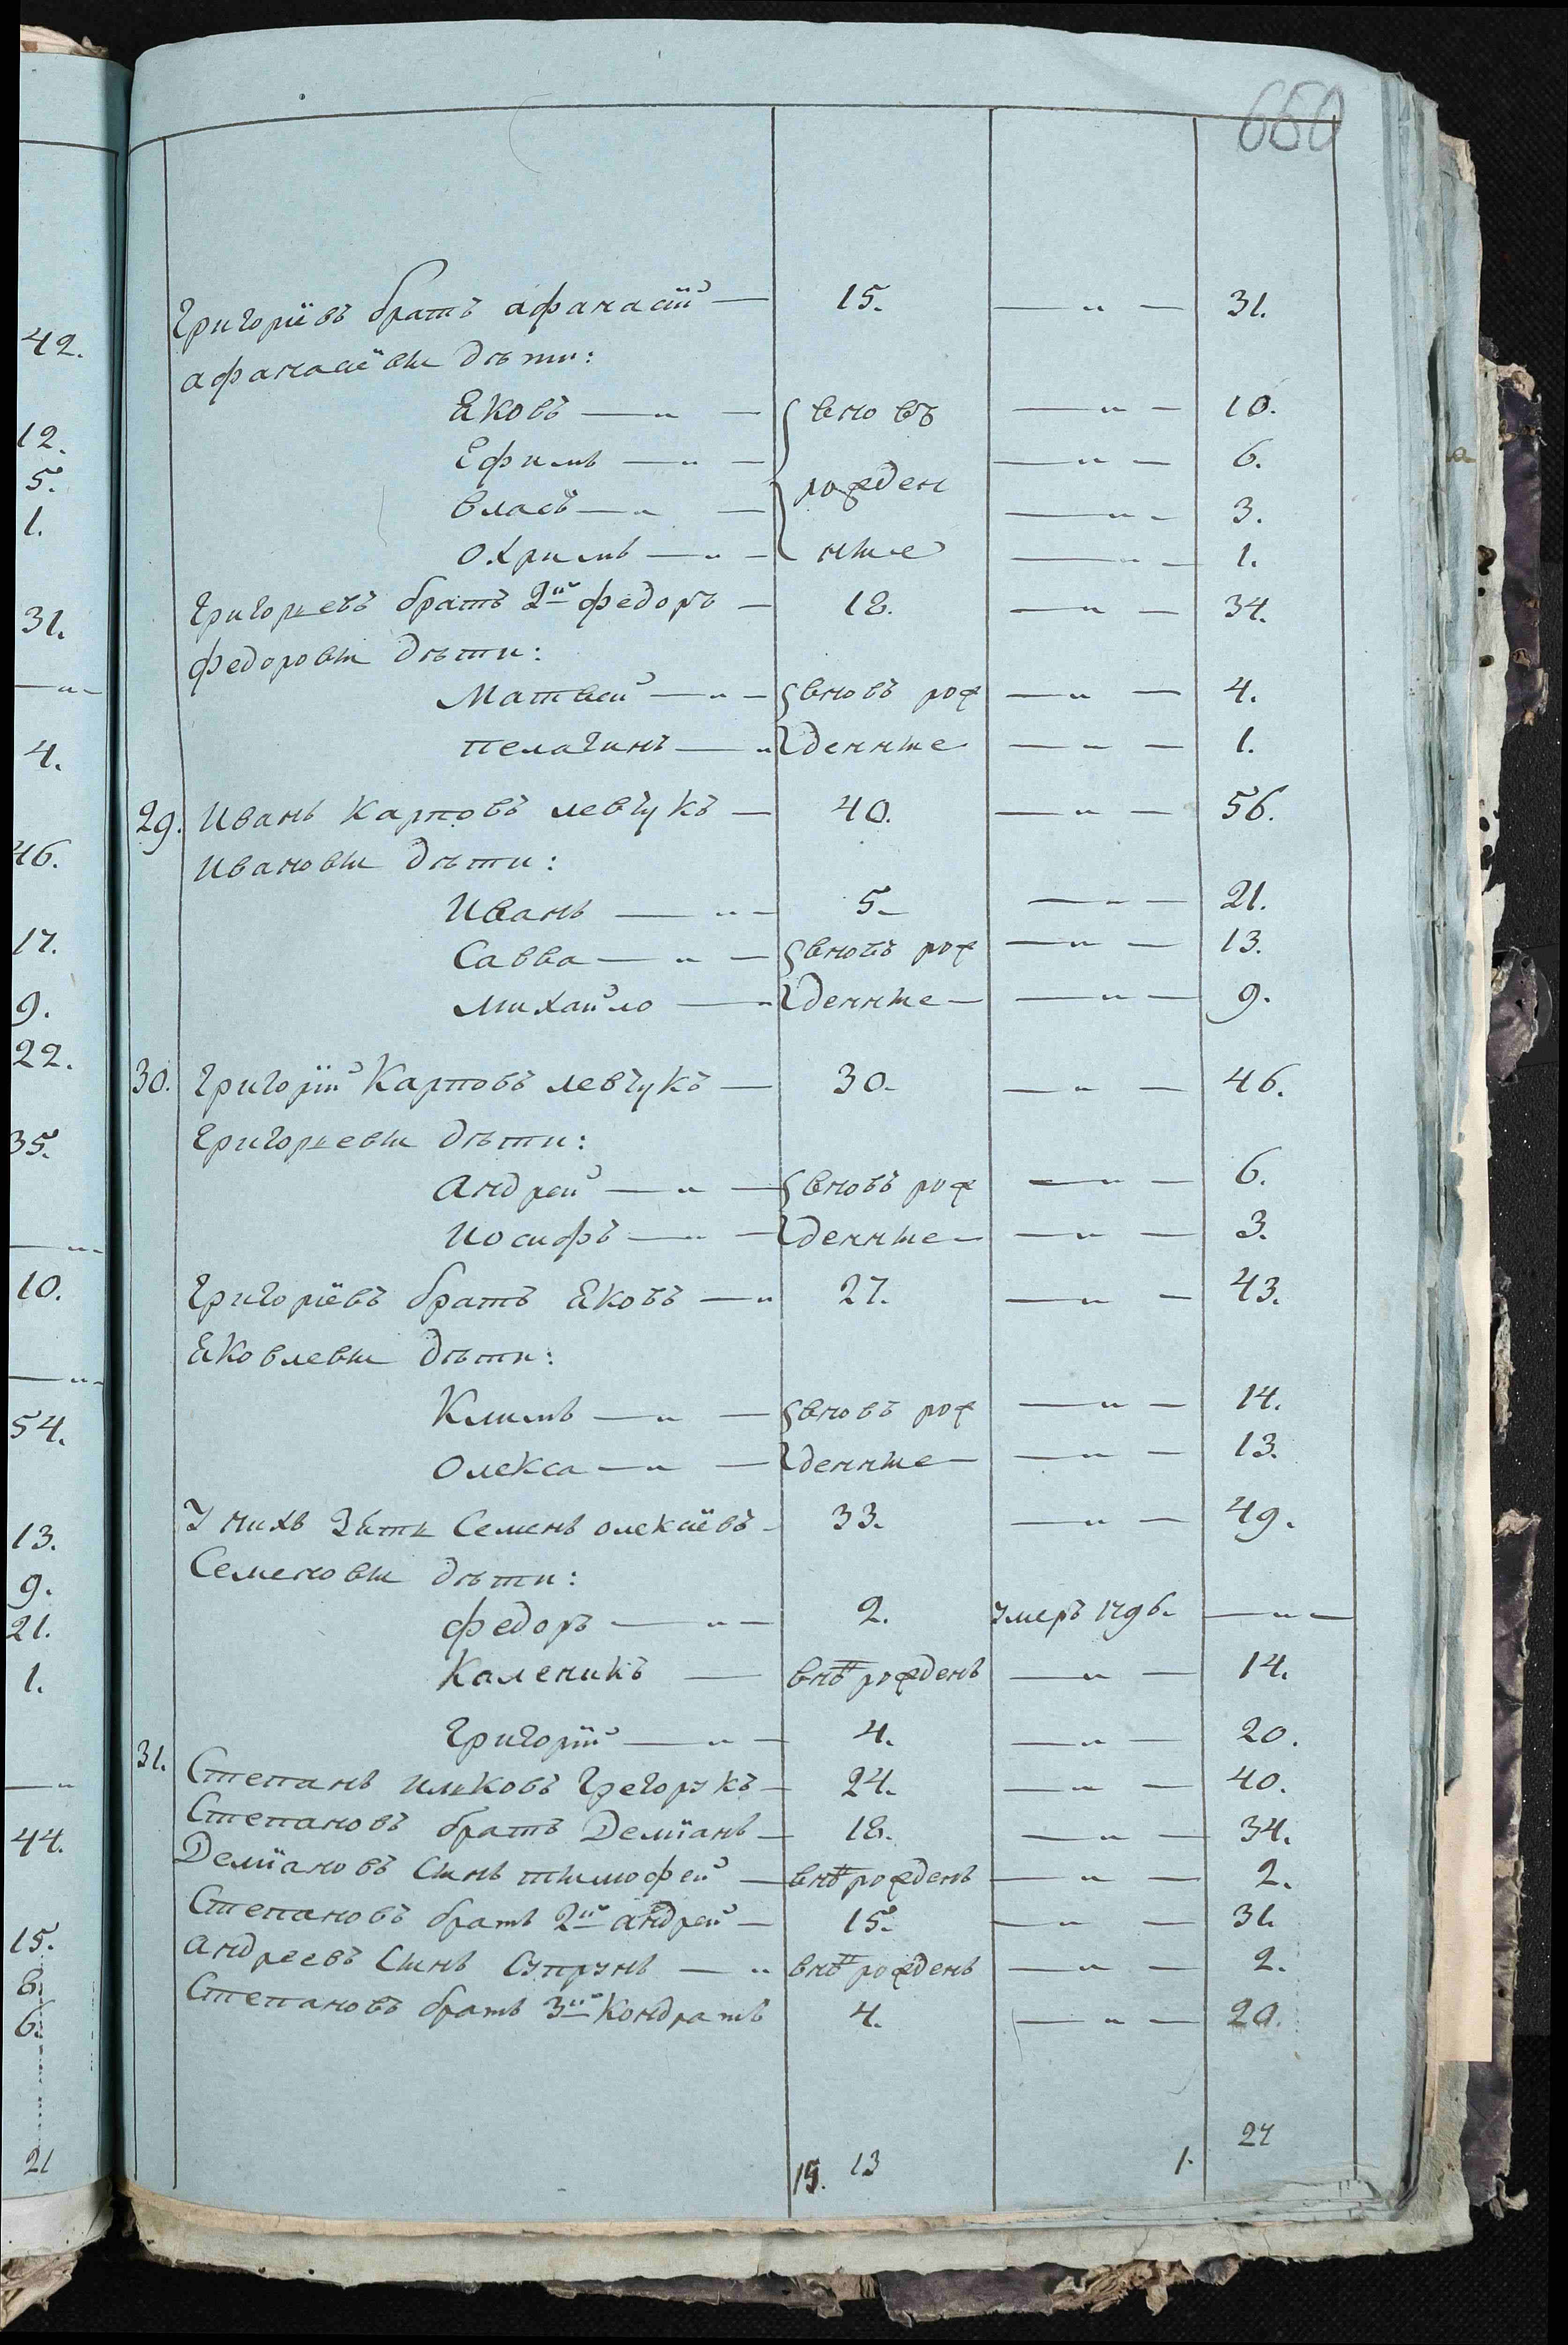 660
Григорiевъ братъ афанасiй — 15. — „ — 31.
афанасiевы дѣти:
Яковъ — „ — вновъ — „ — 10.
Ефимъ — „ — — „ — 6.
власъ — „ — рожден — „ — 3.
охримъ — „ — ные — „ — 1.
Григорьевъ братъ 2й федоръ — 18. — „ — 34.
федоровы дѣти:
Матвей — „ — вновъ рож — „ — 4.
пелагинъ — „ денные — „ — 1.
29. Иванъ Карповъ левчукъ — 40. — „ — 56.
Ивановы дѣти:
Иванъ — „ — 5. — „ — 21.
Савва — „ — вновъ рож — „ — 13.
Михайло — „ денные — — „ — 9.
30. Григорiй Карповъ левчукъ — 30. — „ — 46.
Григорьевы дѣти:
Андрей — „ — вновъ рож — „ — 6.
Иосифъ — „ — денные — — „ — 3.
Григорiевъ братъ Яковъ — „ 27. — „ — 43.
Яковлевы дѣти:
Климъ — „ — вновъ рож — „ — 14.
Олекса — „ — денные — — „ — 13.
У нихъ зять Семенъ олексiевъ — 33. — „ — 49.
Семеновы дѣти:
федоръ — „ — 2. умеръ 1796. — „ —
Каленикъ — внѣ рожденъ — „ — 14.
Григорiй — „ — 4. — „ — 20.
31. Степанъ Ильковъ Грегорукъ — 24. — „ — 40.
Степановъ братъ Демiанъ — 18. — „ — 34.
Демiановъ сынъ тымофей — внѣ рожденъ — „ — 2.
Степановъ братъ 2й андрей — 15. — „ — 31.
андреевъ сынъ Супрунъ — „ внѣ рожденъ — „ — 2.
Степановъ братъ 3й Кондратъ 4. — „ — 20.
15. 13 1. 27
42.
12.
5.
1.
31.
— „ —
4.
46.
17.
9.
22.
35.
— „ —
10.
— „ —
54.
13.
9.
21.
1.
— „
44.
15.
8.
6.
21